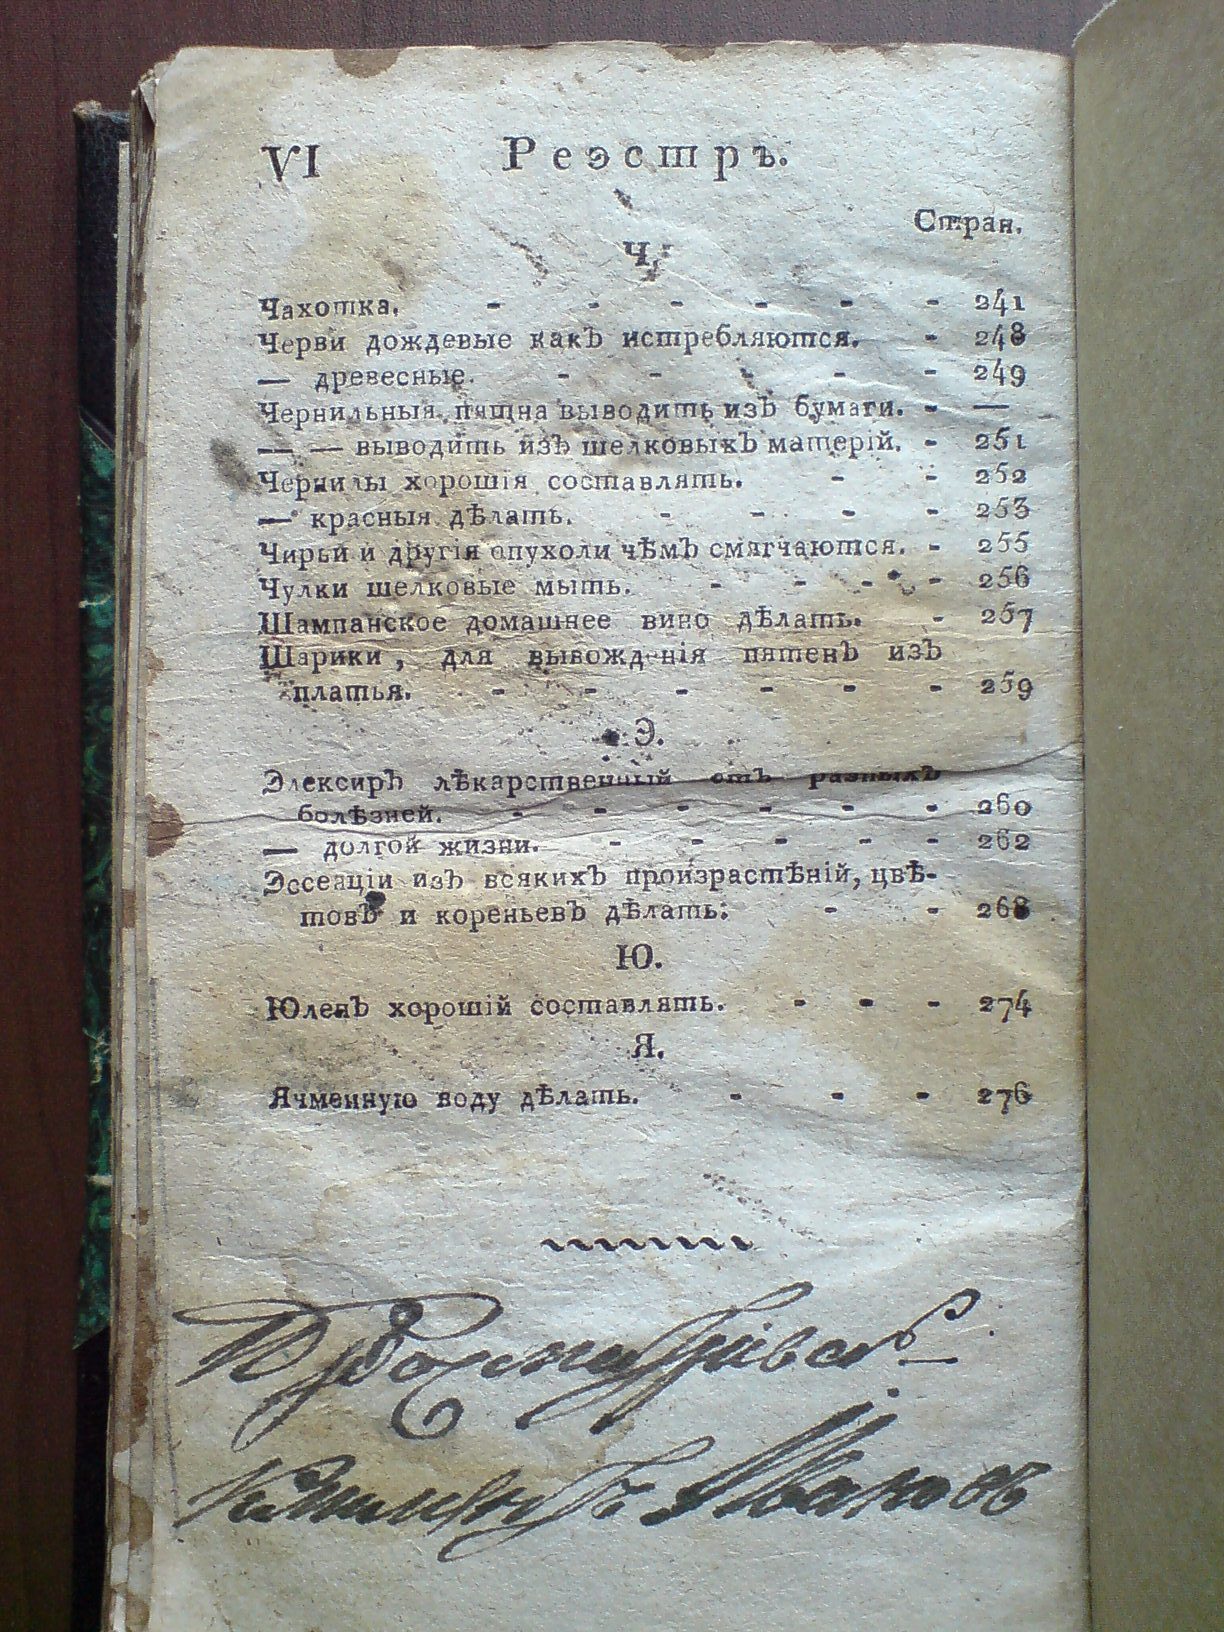 VI Реэстръ.
Стран.
Ч.
Чахотка. - - - - - - 241
Черви дождевые какъ истребляются. - 248
— древесные. - - - - - 249
Чернильныя пятна выводить изъ бумаги. - —
— — выводить изъ шелковыхъ матерій. - 251
Чернилы хорошія составлять. - - 252
— красныя дѣлать. - - - - 253
Чирьи и другія опухоли чѣмъ смягчаются. - 255
Чулки шелковые мыть. - - - - 256
Шампанское домашнее вино дѣлать. - 257
Шарики, для вывожденія пятенъ изъ
платья. - - - - - - 259
Э.
Элексиръ лѣкарственный отъ разныхъ
болѣзней. - - - - - - 260
— долгой жизни. - - - - - 262
Эссенціи изъ всякихъ произрастѣній, цвѣ-
товъ и кореньевъ дѣлать. - - 268
Ю.
Юлепъ хорошій составлять. - - - 274
Я.
Ячменную воду дѣлать. - - - 276